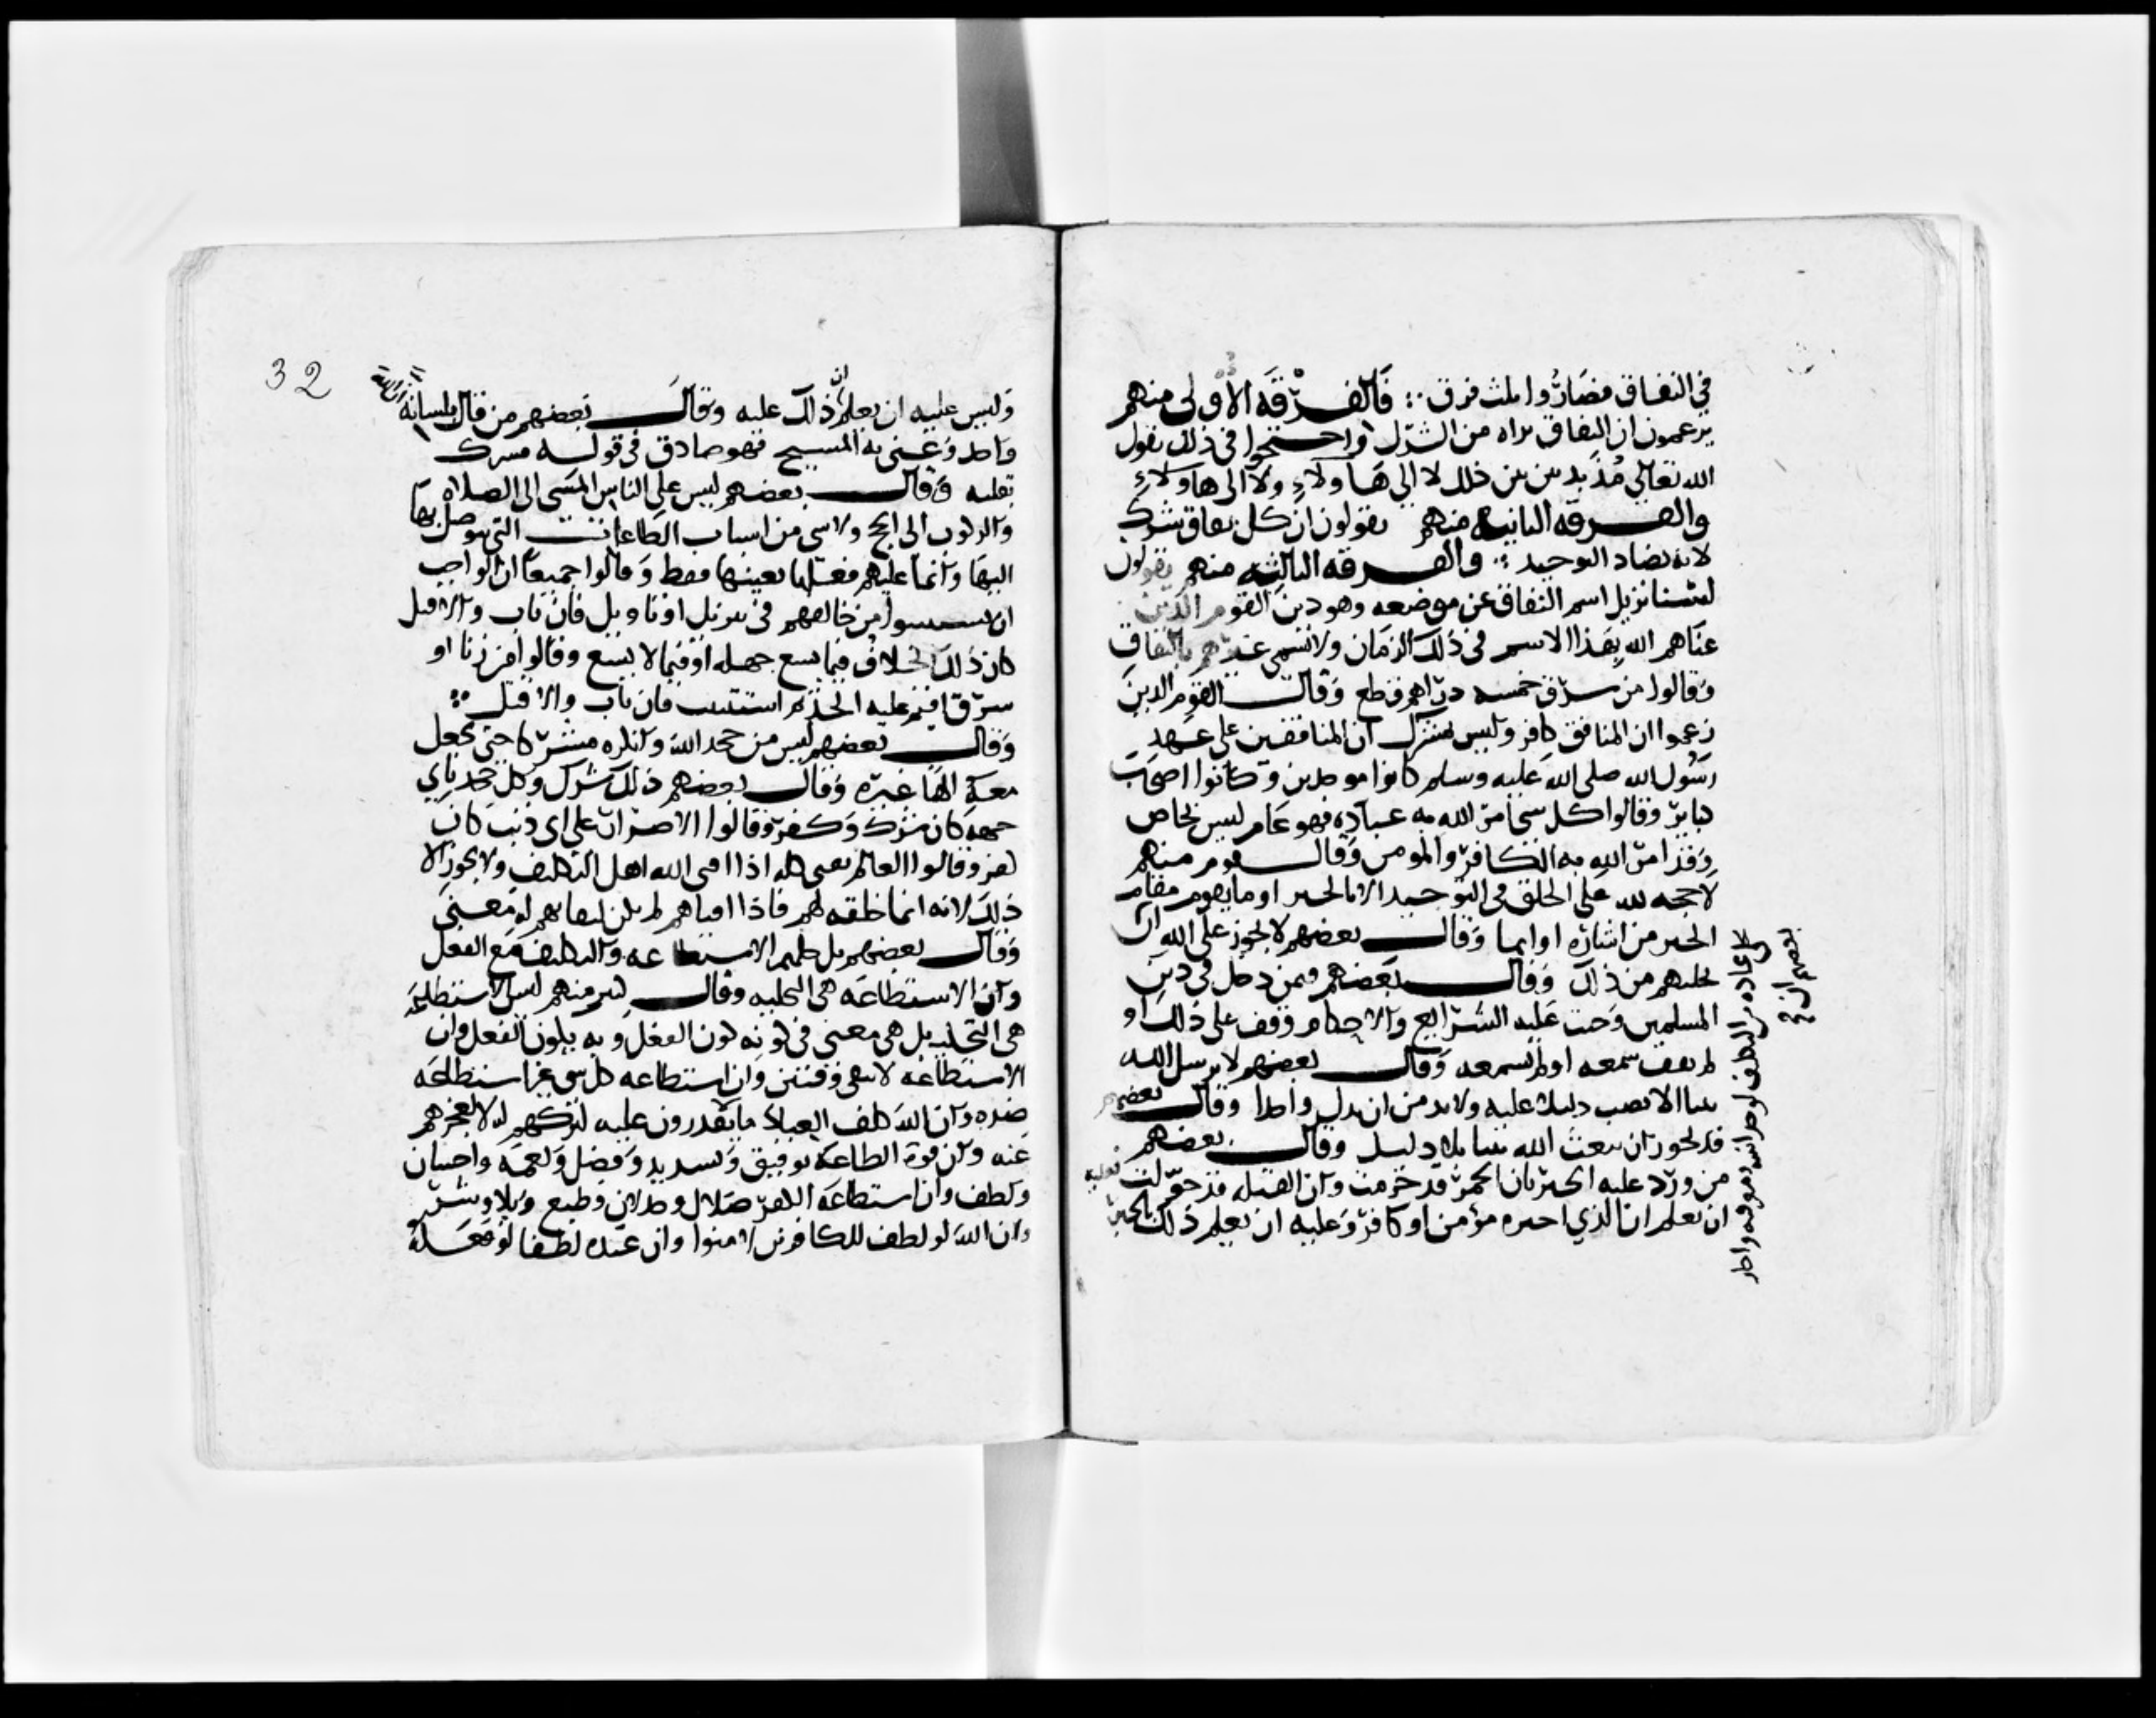 في النفاق فصاروا ثلث فرق ∴ فالفرقة الاولى منهم
يزعمون ان النفاق براه من الشرك واحتجوا في ذلك بقول
الله تعالى مذبذبين بين ذلك لا الى هاولاء ولا الى هاولاء
والفرقه الثانية منهم يقولون ان كل نفاق شرك
لانه يضاد التوحيد ∴ والفرقه الثالثه منهم يقولون
لسنا نزيل اسم النفاق عن موضعه وهو دين القوم الذين
عناهم الله بهذا الاسم في ذلك الزمان ولا نسمي غيرهم بالنفاق
وقالوا من سرق خمسه دراهم قطع وقالت القوم الذين
زعموا ان المنافق كافر وليس بمشرك ان المنافقين على عهد
رسول الله صلى الله عليه وسلم كانوا موحدين وكانوا اصحاب
كبائر وقالوا كل شي امر الله به عباده فهو عام ليس بخاص
وقد امر الله به الكافر والمومن وقال قوم منهم
لا حجه لله على الخلق في التوحيد الا بالخبر او ما يقوم مقام
الخبر من اشاره او ايما وقال بعضهم لا يجوز على الله ان
يخليهم من ذلك وقال بعضهم فمن دخل في دين
المسلمين وجبت عليه الشرايع والاحكام وقف على ذلك او
لم يقف سمعه او لم يسمعه وقال بعضهم لا يرسل الله
نبيا الا نصب دليلا عليه ولابد من ان يدل واحدا وقال بعضهم
قد يجوز ان يبعث الله نبيا بلا دليل وقال بعضهم
من ورد عليه الخبر بان الخمر قد حرمت وان القبله قد حولت فعليه
ان يعلم ان الذي اخبره مؤمن او كافر وعليه ان يعلم ذلك بالخبر
32
وليس عليه ان يعلم ان ذلك عليه وقال بعضهم من قال بلسانه
واحد وعنى به المسيح فهو صادق في قوله مشرك
بقلبه وقال بعضهم ليس على الناس المشي الى الصلاه
والركوب الى الحج ولا شي من اسباب الطاعات التي يتوصل بها
اليها وانما عليهم فعلها بعينها فقط وقالوا جميعا ان الواجب
ان يستتيبوا من خالفهم في تنزيل او تاويل فان تاب والا قتل
كان ذلك الخلاف فيما يسع جهله او فيما لا يسع وقالوا من زنا او
سرق اقيم عليه الحد ثم استتيب فان تاب والا قتل ∴
وقال بعضهم ليس من جحد الله وانكره مشركا حتى يجعل
معه الها غيره وقال بعضهم ذلك شرك وكل جحد باي
جهه كان شرك وكفر وقالوا الاصرار على اي ذنب كان
كفر وقالوا العالم يفنى كله اذا افنى الله اهل التكليف ولا يجوز الا
ذلك لانه انما خلقه لهم فاذا افناهم لم يكن لبقايه له معنى
وقال بعضهم بل كلهم الاستطاعه والتكليف مع الفعل
وان الاستطاعه هي التخليه وقال كثير منهم ليس الاستطاعه
هي التخليه بل هي معنى في كونه كون الفعل وبه يكون الفعل وان
الاستطاعه لا تبقى وقتين وان استطاعه كل شي غير استطاعه
ضده وان الله كلف العباد ما لا يقدرون عليه لتركهم له لا لعجزهم
عنه وان قوة الطاعه توفيق وتسديد وفضل ونعمه واحسان
ولطف وان استطاعه الكفر ضلال وخذلان وطبع وبلا وشر
وان الله لو لطف للكافرين لامنوا وان عنده لطفا لو فعله